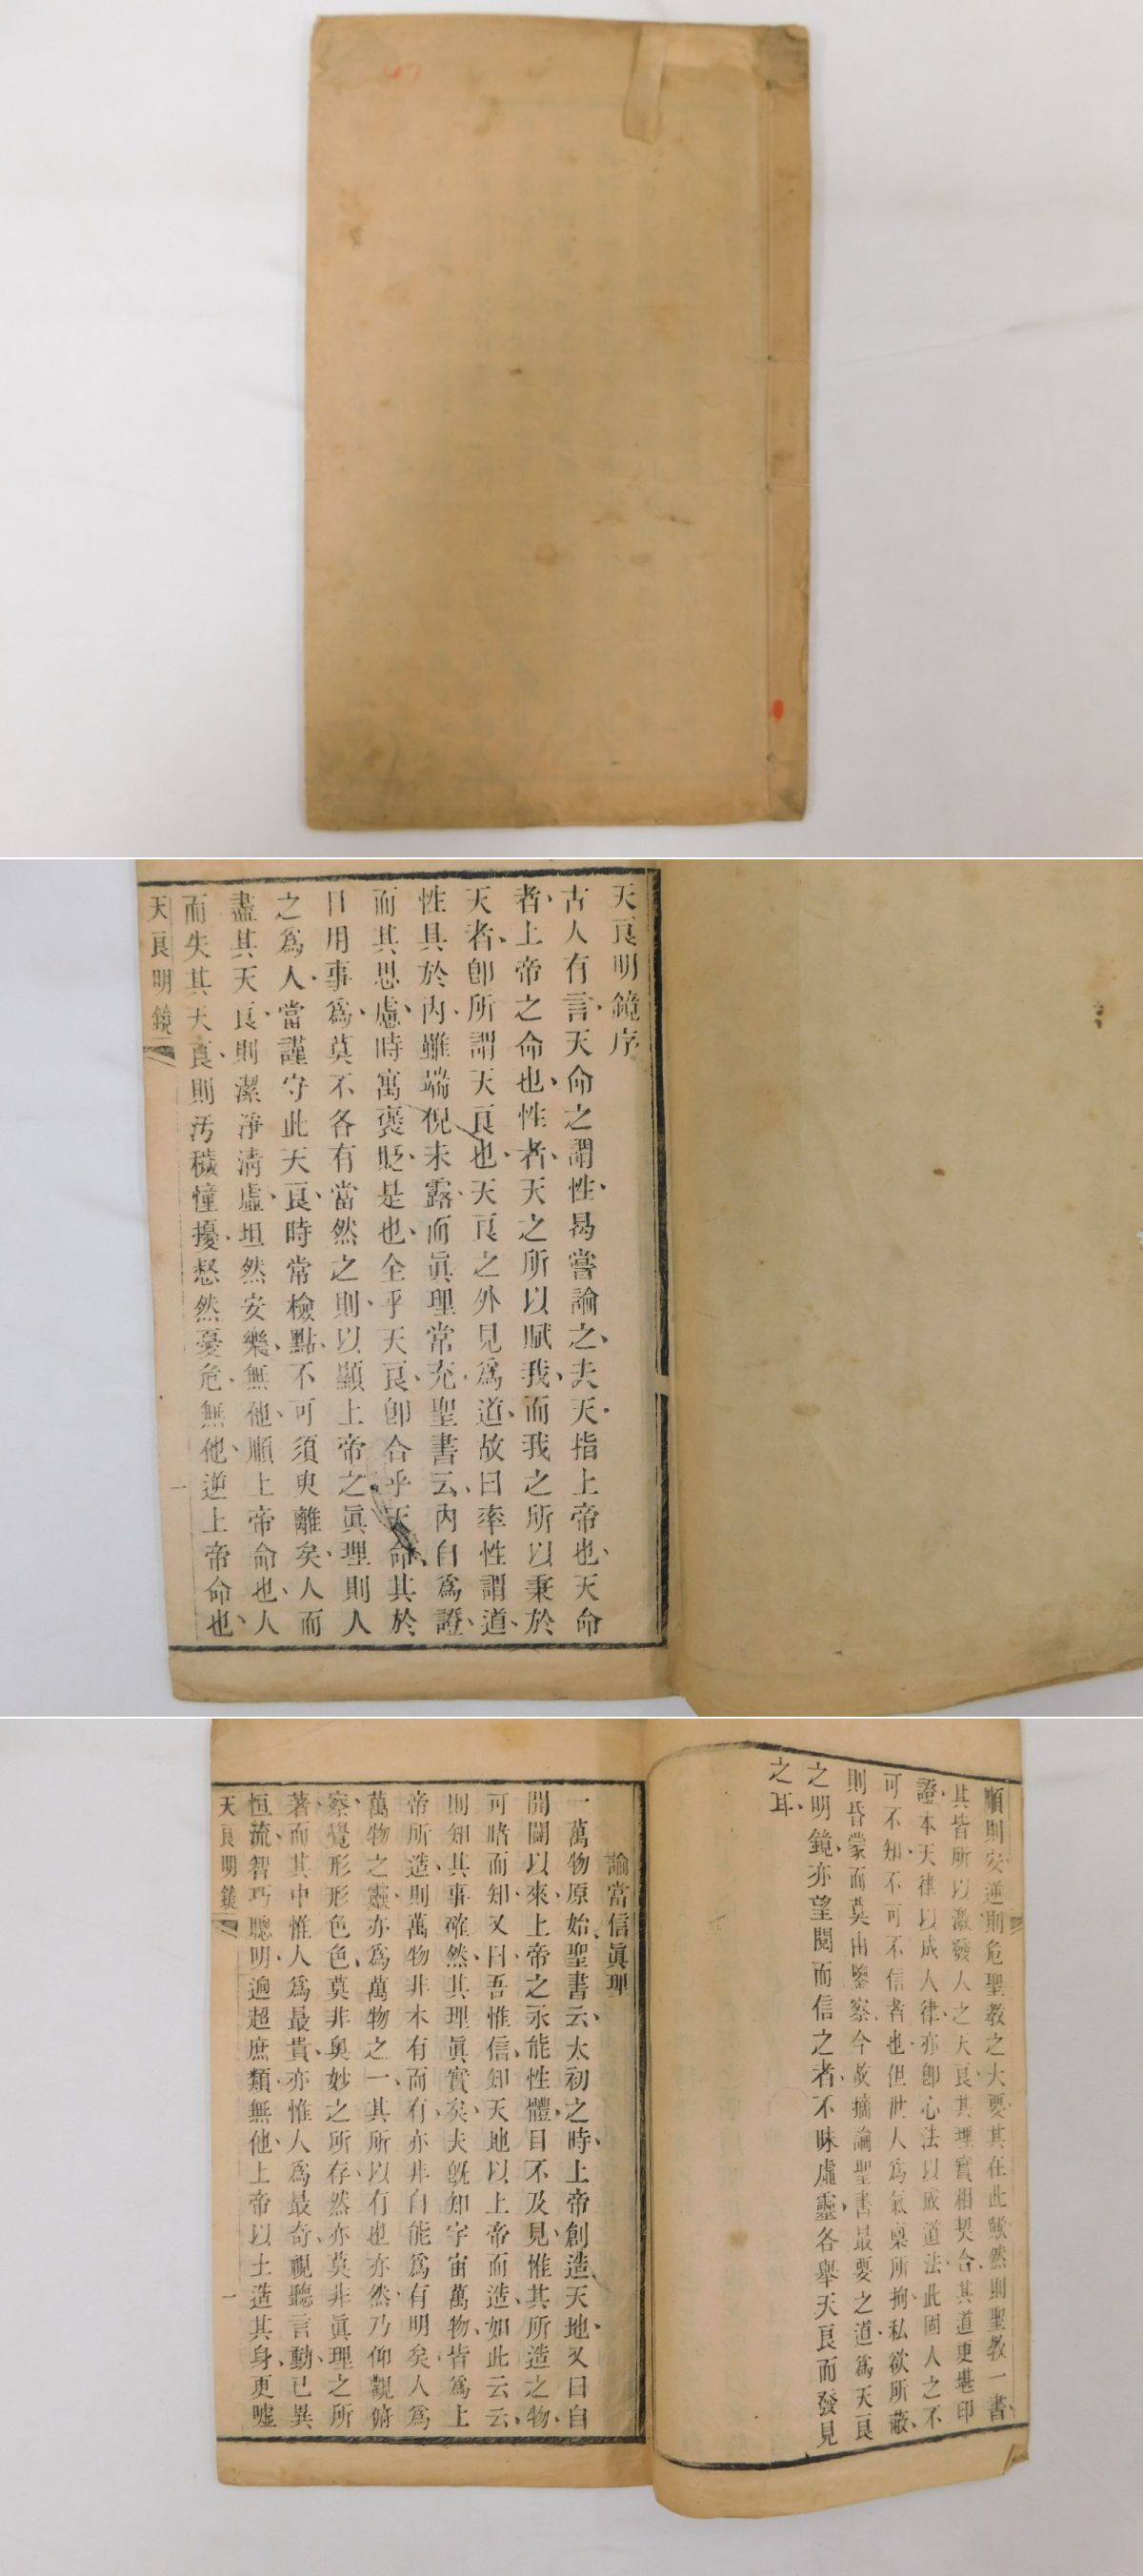 天良明鏡序
古人有言、天命之謂性、曷嘗論之、夫天、指上帝也、天命
者、上帝之命也、性者、天之所以賦我、而我之所以秉於
天者、卽所謂天良也、天良之外見爲道、故曰率性謂道、
性具於內、雖端倪未露、而眞理常充、聖書云、內自爲證、
而其思慮、時寓褒貶、是也、全乎天良、卽合乎天命、其於
日用事爲、莫不各有當然之則、以顯上帝之眞理、則人
之爲人、當謹守此天良、時常檢點、不可須臾離矣、人而
盡其天良、則潔淨淸虛、坦然安樂、無他、順上帝命也、人
而失其天良、則汚穢憧擾、惄然憂危、無他、逆上帝命也、
天良明鏡
一
順則安、逆則危、聖教之大要、其在此歟、然則聖教一書、
其皆所以激發人之天良、其理實相契合、其道更堪印
證、本天律以成人律、亦卽心法以成道法、此固人之不
可不知、不可不信者也、但世人爲氣稟所拘、私欲所蔽、
則昏蒙而莫由鑒察、今故摘論聖書最要之道、爲天良
之明鏡、亦望閱而信之者、不昧虛靈、各舉天良而發見
之耳、
論當信眞理
一萬物原始、聖書云、太初之時、上帝創造天地、又曰自
開闢以來、上帝之永能性體、目不及見、惟其所造之物、
可睹而知、又曰、吾惟信、知天地以上帝而造、如此云云、
則知其事確然、其理眞實矣、夫旣知宇宙萬物、皆爲上
帝所造、則萬物非本有而有、亦非自能爲有明矣、人爲
萬物之靈、亦爲萬物之一、其所以有也亦然、乃仰觀俯
察、覺形形色色、莫非奧妙之所存、然亦莫非眞理之所
著、而其中惟人爲最貴、亦惟人爲最奇、視聽言動、已異
恒流、智巧聰明、迥超庶類、無他、上帝以土造其身、更噓
天良明鏡
一